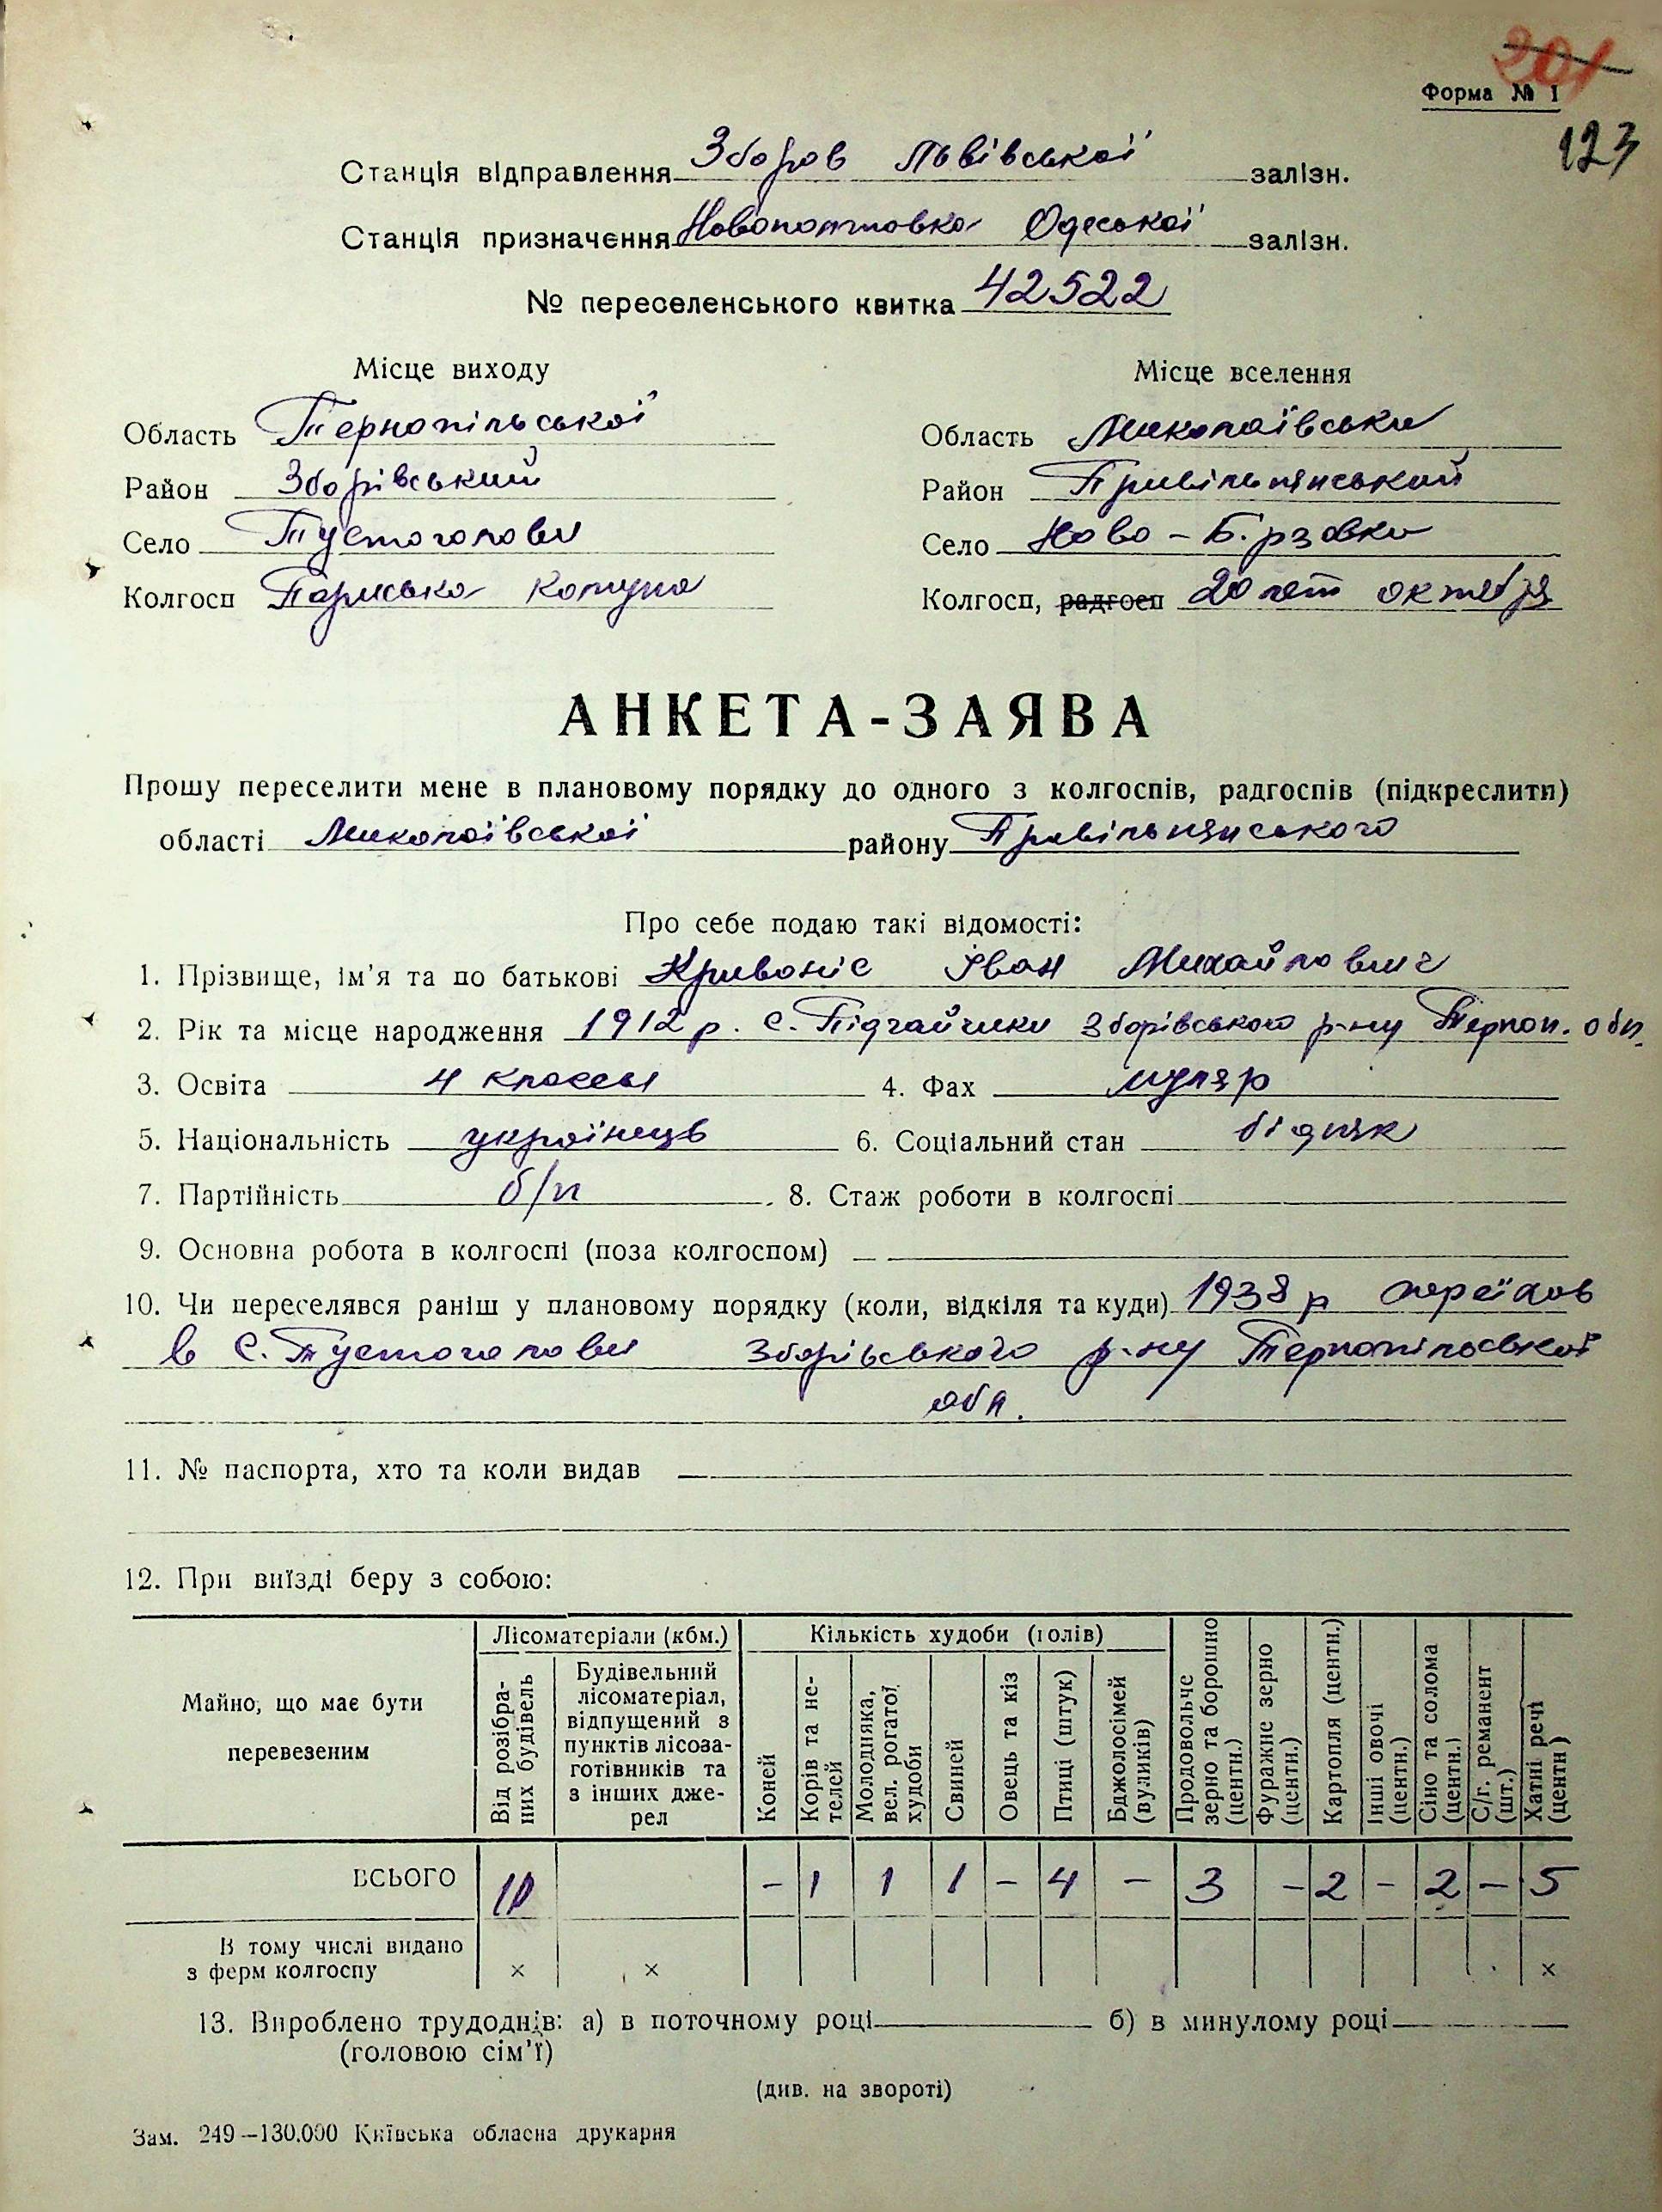 201
Форма № 1
123
Станція відправлення Зборов Львівської залізн.
Станція призначення Новополтовка Одеської залізн.
№ переселенського квитка 42522
Місце виходу Місце вселення
Область Тернопільської Область Миколаївська
Район Зборівський Район Привільнянський
Село Пустоголови Село Ново-
Колгосп Паризька Комуна Колгосп, радгосп 20 лет октября
АНКЕТА-ЗАЯВА
Прошу переселити мене в плановому порядку до одного з колгоспів, радгоспів (підкреслити)
області Миколаївської району Привільнянського
Про себе подаю такі відомості:
1. Прізвище, ім'я та по батькові Кривоніс Іван Михайлович
2. Рік та місце народження 1912 р. с. Підгайчики Зборівського р-ну Терноп. обл.
3. Освіта 4 класси 4. Фах муляр
5. Національність українець 6. Соціальний стан бідняк
7. Партійність б/п 8. Стаж роботи в колгоспі
9. Основна робота в колгоспі (поза колгоспом) —
10. Чи переселявся раніш у плановому порядку (коли, відкіля та куди) 1938 р переїхав
в с. Пустоголови Зборівського р-ну Тернопільської
обл.
11. № паспорта, хто та коли видав
12. При виїзді беру з собою:
Майно, що має бути перевезеним
Лісоматеріали (кбм.)
Від розібраних будівель
Будівельний лісоматеріал, відпущений з пунктів лісозаготівників та з інших джерел
Кількість худоби (голів)
Коней
Корів та нетелей
Молодняка, вел. рогатої худоби
Свиней
Овець та кіз
Птиці (штук)
Бджолосімей (вуликів)
Продовольче зерно та борошно (центн.)
Фуражне зерно (центн.)
Картопля (центн.)
Інші овочі (центн.)
Сіно та солома (центн.)
С/г. реманент (шт.)
Хатні речі (центн)
ВСЬОГО 10 – 1 1 1 – 4 – 3 – 2 – 2 – 5
В тому числі видано
з ферм колгоспу × × ×
13. Вироблено трудоднів: а) в поточному році б) в минулому році
(головою сім'ї)
(див. на звороті)
Зам. 249—130.000 Київська обласна друкарня